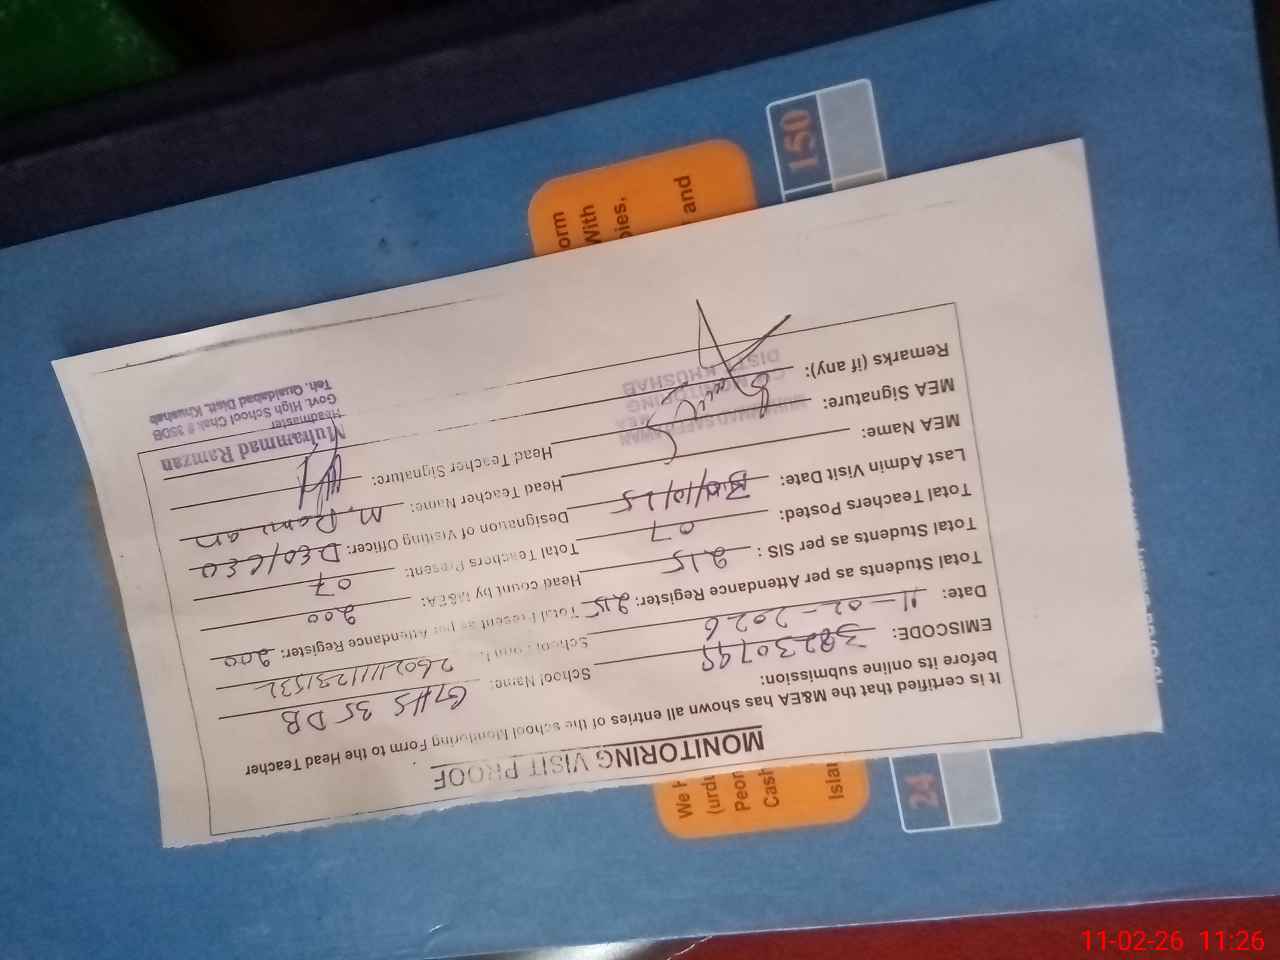 MONITORING VISIT PROOF
It is certified that the M&EA has shown all entries of the school Monitoring Form to the Head Teacher
before its online submission:
EMISCODE: 38230795 School Name: GHS 35 DB
Date: 11-02-2026 School
Total Students as per Attendance Register: 215 Total Present as per Attendance Register: 200
Total Students as per SIS: 215 Head count by M&EA: 200
Total Teachers Posted: 07 Total Teachers Present: 07
Last Admin Visit Date: /10/25 Designation of Visiting Officer: DEO/CEO
MEA Name: Head Teacher Name: M. Ramzan
MEA Signature: Head Teacher Signature:
Remarks (if any):
DISTT. KHUSHAB
Muhammad Ramzan
Headmaster
Govt. High School Chak # 35DB
Teh. Quaidabad Distt. Khushab
150
orm
With
pies,
and
24
We
(urdu
Peon
Cash
Islam
11-02-26 11:26